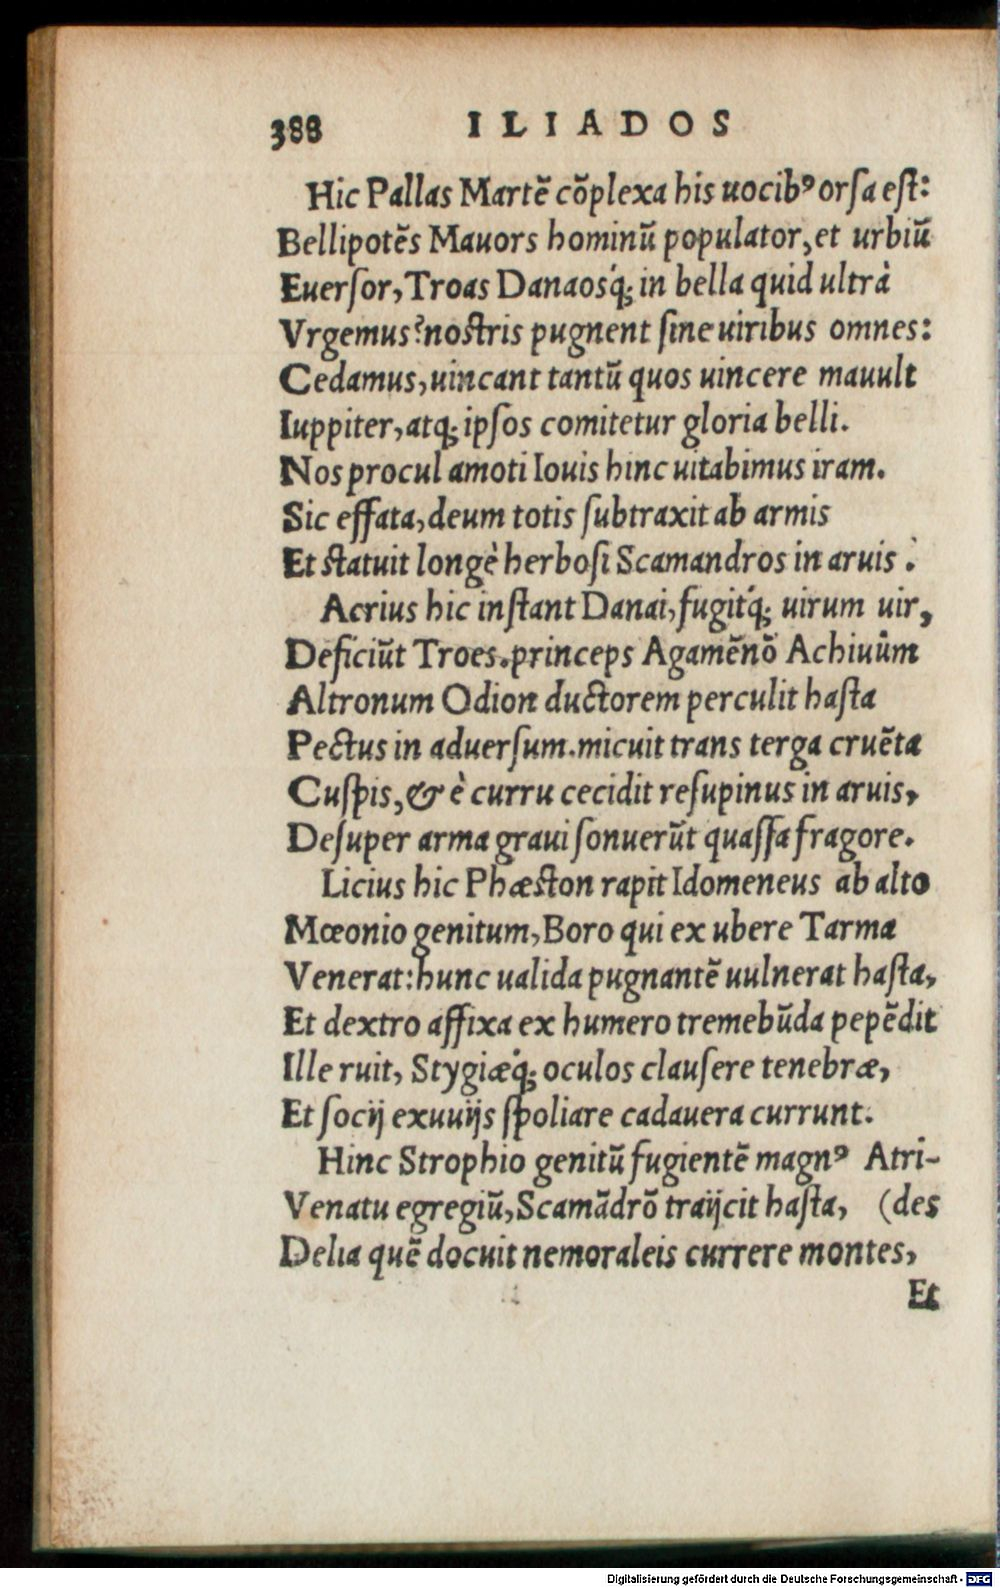 388 ILIADOS
Hic Pallas Martē cōplexa his uocibꝰ orſa eſt:
Bellipotēs Mauors hominū populator, et urbiū
Euerſor, Troas Danaosq́; in bella quid ultrà
Vrgemus? noſtris pugnent ſine uiribus omnes:
Cedamus, uincant tantū quos uincere mauult
Iuppiter, atq; ipſos comitetur gloria belli.
Nos procul amoti Iouis hinc uitabimus iram.
Sic effata, deum totis ſubtraxit ab armis
Et ſtatuit longè herboſi Scamandros in aruis.
Acrius hic inſtant Danai, fugitq́; uirum uir,
Deficiūt Troes. princeps Agamēnō Achiuûm
Altronum Odion ductorem perculit haſta
Pectus in aduerſum. micuit trans terga cruēta
Cuſpis, & è curru cecidit reſupinus in aruis,
Deſuper arma graui ſonuerūt quaſſa fragore.
Licius hic Phæſton rapit Idomeneus ab alto
Mœonio genitum, Boro qui ex ubere Tarma
Venerat: hunc ualida pugnantē uulnerat haſta,
Et dextro affixa ex humero tremebūda pepēdit
Ille ruit, Stygiæq́; oculos clauſere tenebræ,
Et ſocij exuuijs ſpoliare cadauera currunt.
Hinc Strophio genitū fugientē magnꝰ Atri-
Venatu egregiū, Scamādrō traijcit haſta, (des
Delia quē docuit nemoraleis currere montes,
Et
Digitalisierung gefördert durch die Deutsche Forschungsgemeinschaft - DFG